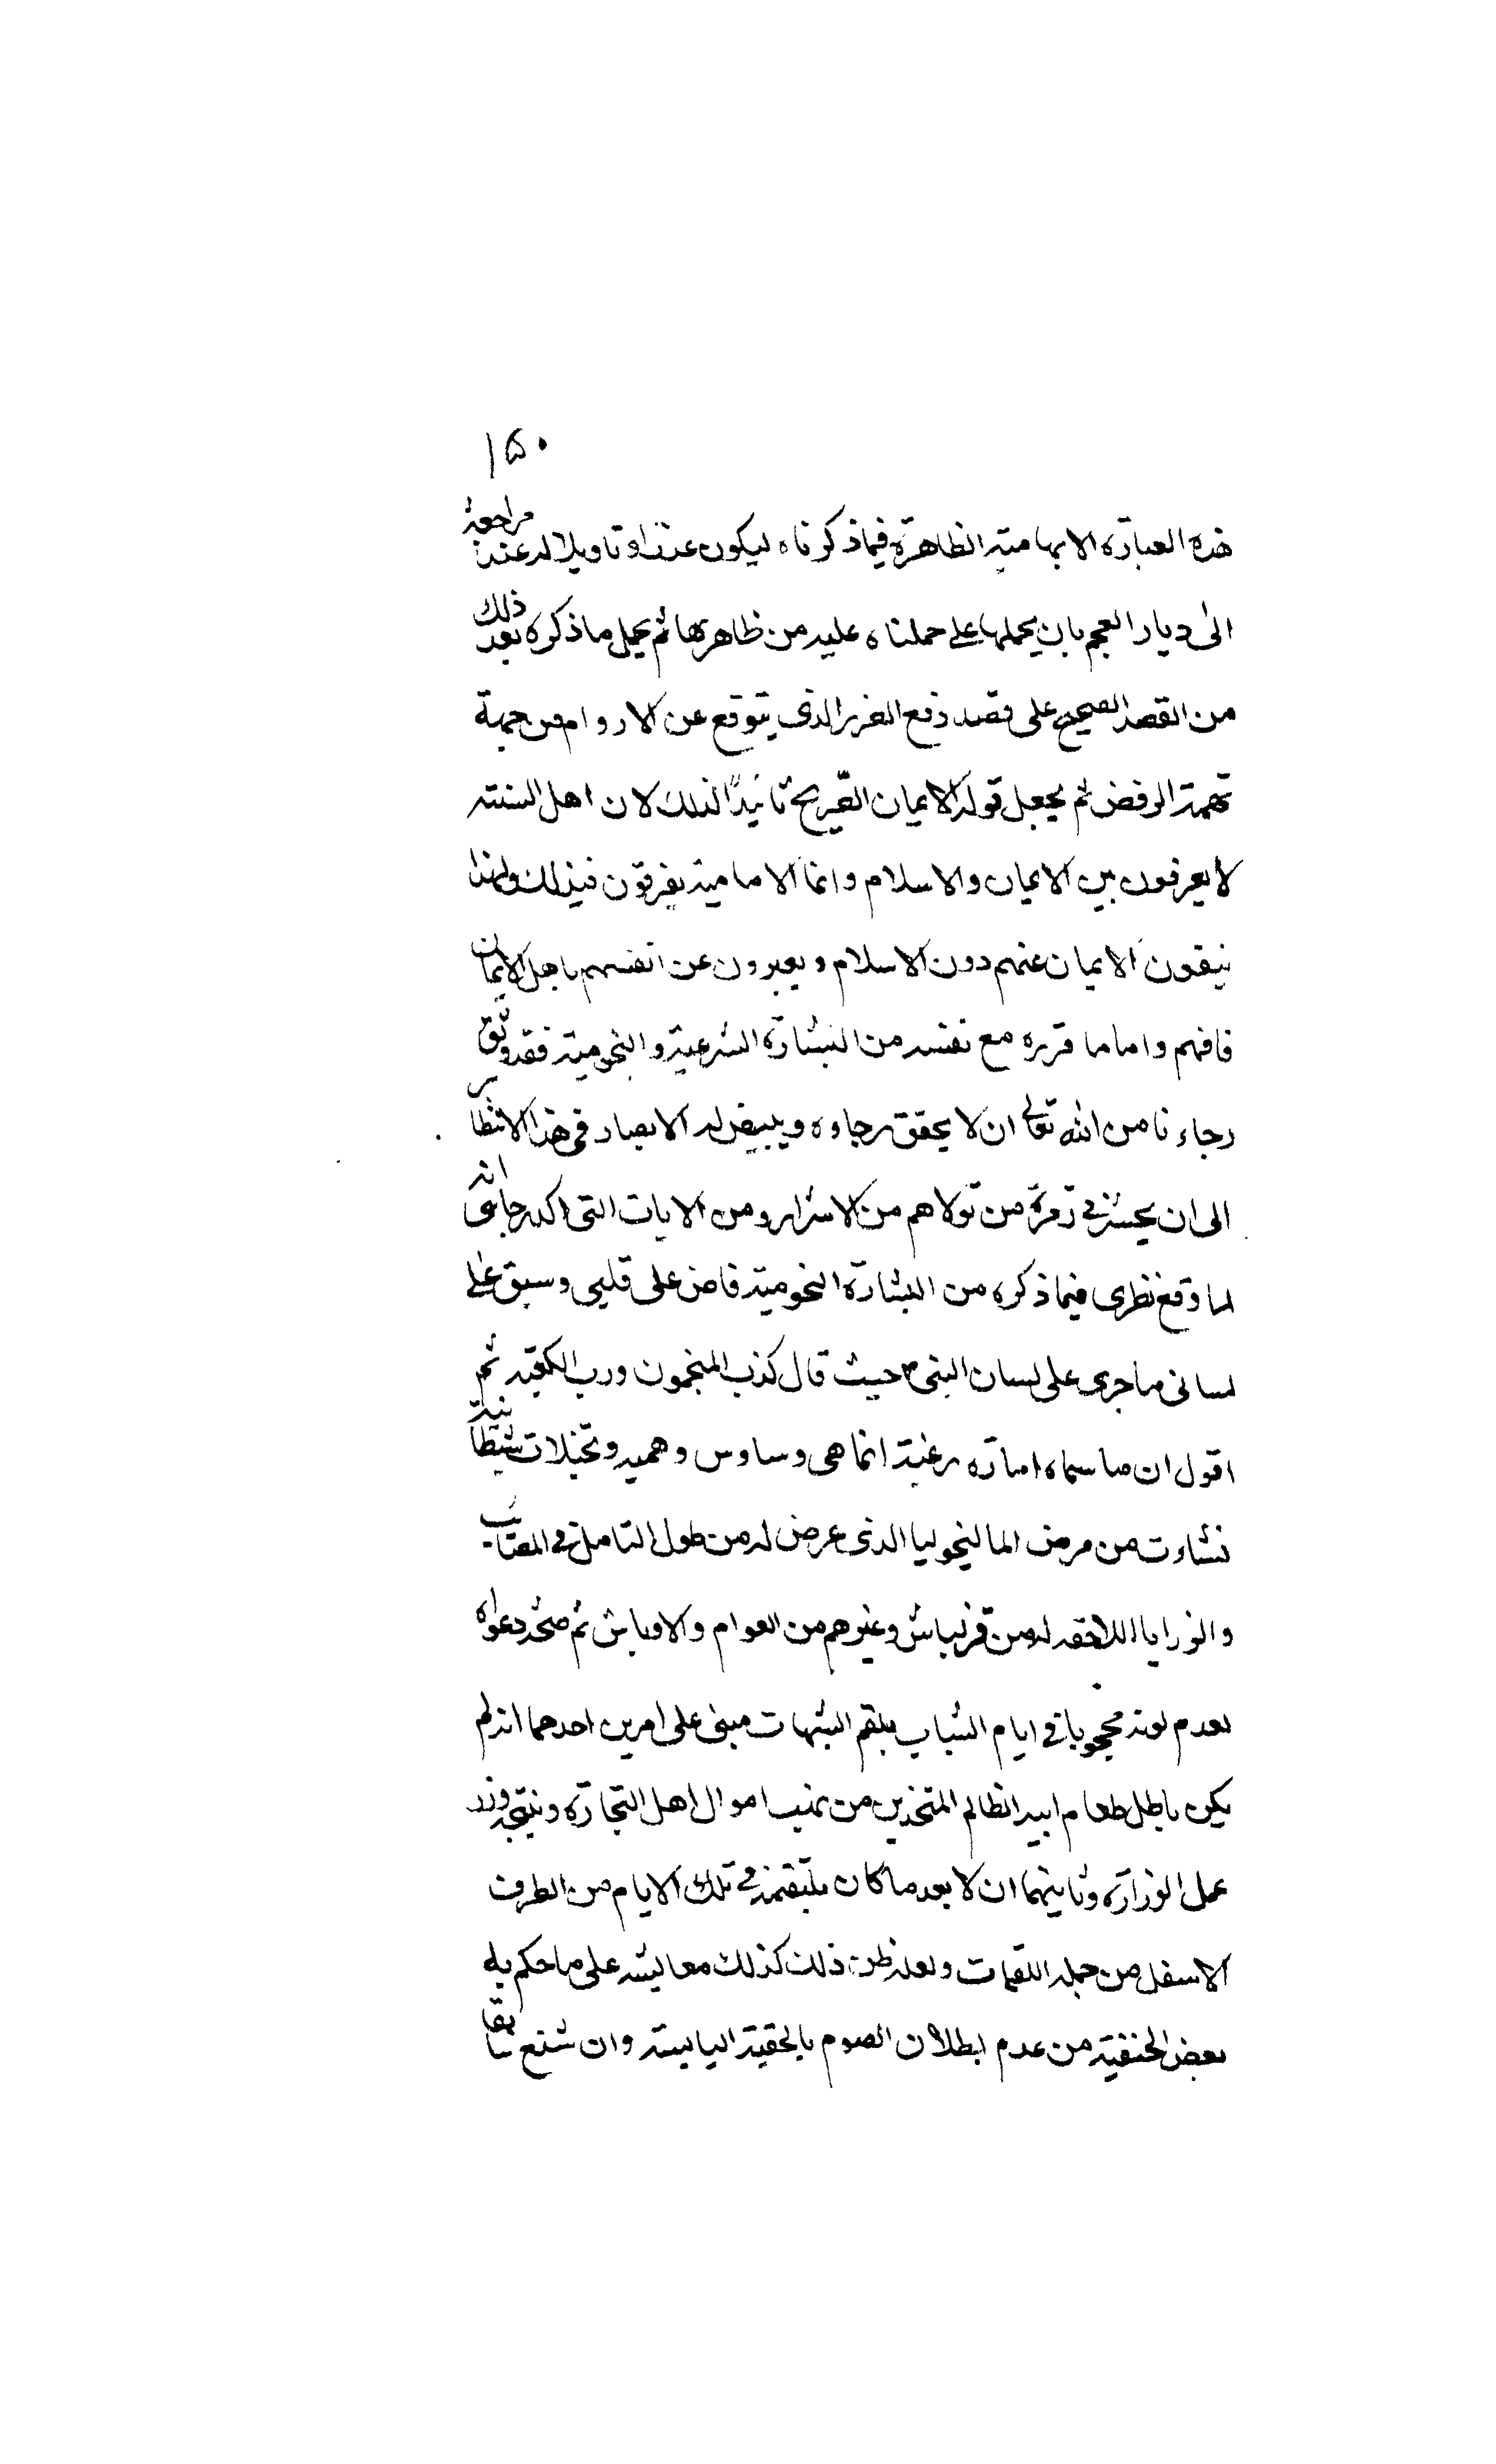 ١٥٠
هذه العبارة الابهامية الظاهرة فيماذكرناه ليكون عذرا وتاويلا له عند مراجعة
الى ديار العجم بان يحملها على حملناه عليه من ظاهرها ثم يحمل ماذكره بعد ذلك
من القصد الصحيح على قصد دفع الضرر الذى يتوقع عن الاروام من جهة
تهمة الرفض ثم يجعل قوله الايمان الصّريح تائيدًا لذلك لان اهل السنته
لا يعرفون بين الايمان والاسلام وانما الامامية يفرقون فيذلك ولهذا
ينفون الايمان عنهم دون الاسلام ويعبرون عن انفسهم باهل الايمان
فافهم واما ما قرره مع نفسه من البشارة الشرعية والنجومية فقد وثق
رجاءنا من الله تعالى ان لا يحقق رجاوه ويبيض له الابصار فى هذا الانتظار
الى ان يحشر فى زمرة من تولاهم من الاشرار ومن الايات التى اكد رجائى انه
لما وقع نظرى فيما ذكره من البشارة النجومية فاض على قلبى وسبق على
لسانى ما جرى على لسان النبى ص حيث قال كذب المنجمون ورب الكعبة ثم
اقول ان ما سماه امارة رغبة انما هى وساوس وهميه وتخيلات شيطانية
نشاءت من مرض الماليخوليا الذى عرض له من طول التامل فى المصائب
والرزايا اللاحقه له من قزلباش وغيرهم من العوام والاوباش ثم صحة دعواه
لعدم كونه محجوبا فى ايام الشباب بلقم الشبهات مبنى على امرين احدهما انه لم
يكن ياكل طعام ابيه الظالم المتخذ من نهب اموال اهل التجارة ونتيجة وزر
عمل الوزارة وثانيهما ان لا يعد ما كان يلتقمه فى تلك الايام من الطرف
الاسفل من جمله اللقمات ولعله ظن ذلك كذلك معاليته على ما حكم به
بعض الحنفية من عدم ابطلان الصوم بالحقنة اليابسته وان شنع سابقا